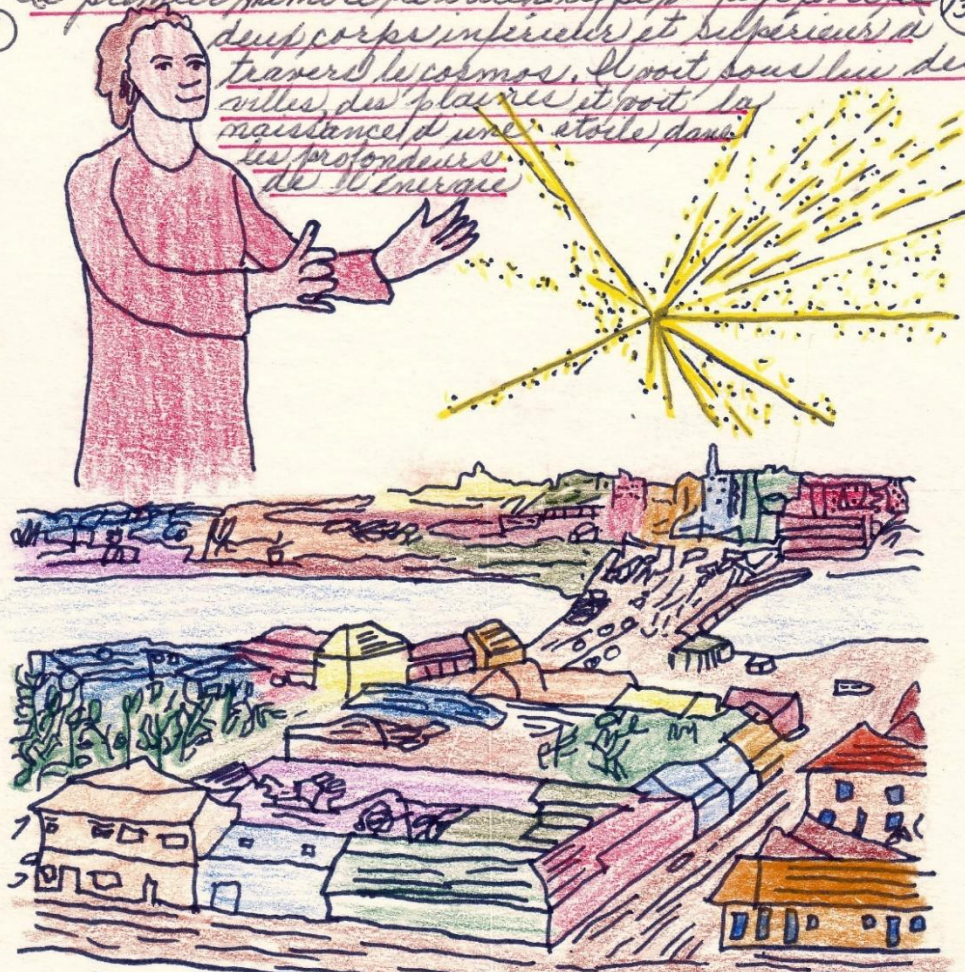 Le premier
deux corps inférieur et supérieur à
travers le cosmos. Il voit sous lui des
villes des plaines et voit la
naissance d'une étoile dans
les profondeurs
de l'énergie